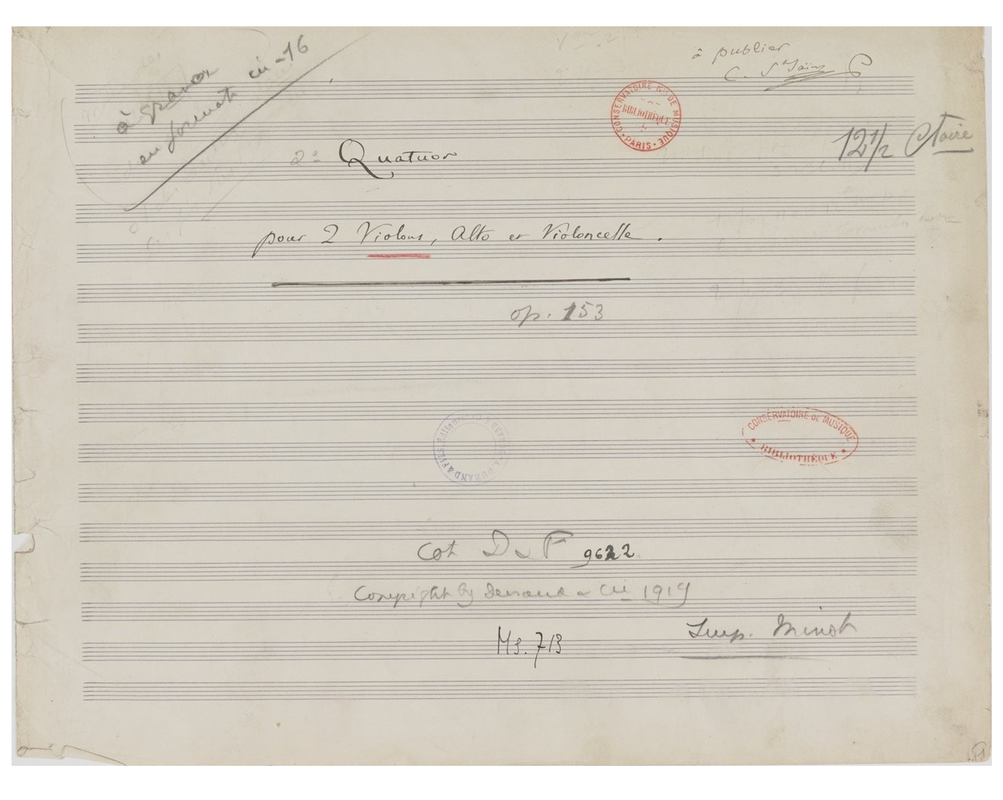 à graver
en format in-16
à publier
C. St Saëns
CONSERVATOIRE NAL DE MUSIQUE
BIBLIOTHÈQUE
PARIS
12 1/2
2e Quatuor
pour 2 Violons, Alto et Violoncelle.
op. 153
CONSERVATOIRE DE MUSIQUE
BIBLIOTHÈQUE
Cot D & F 9622
Copyright by Durand & Cie 1919
Imp. Minot
Ms. 713